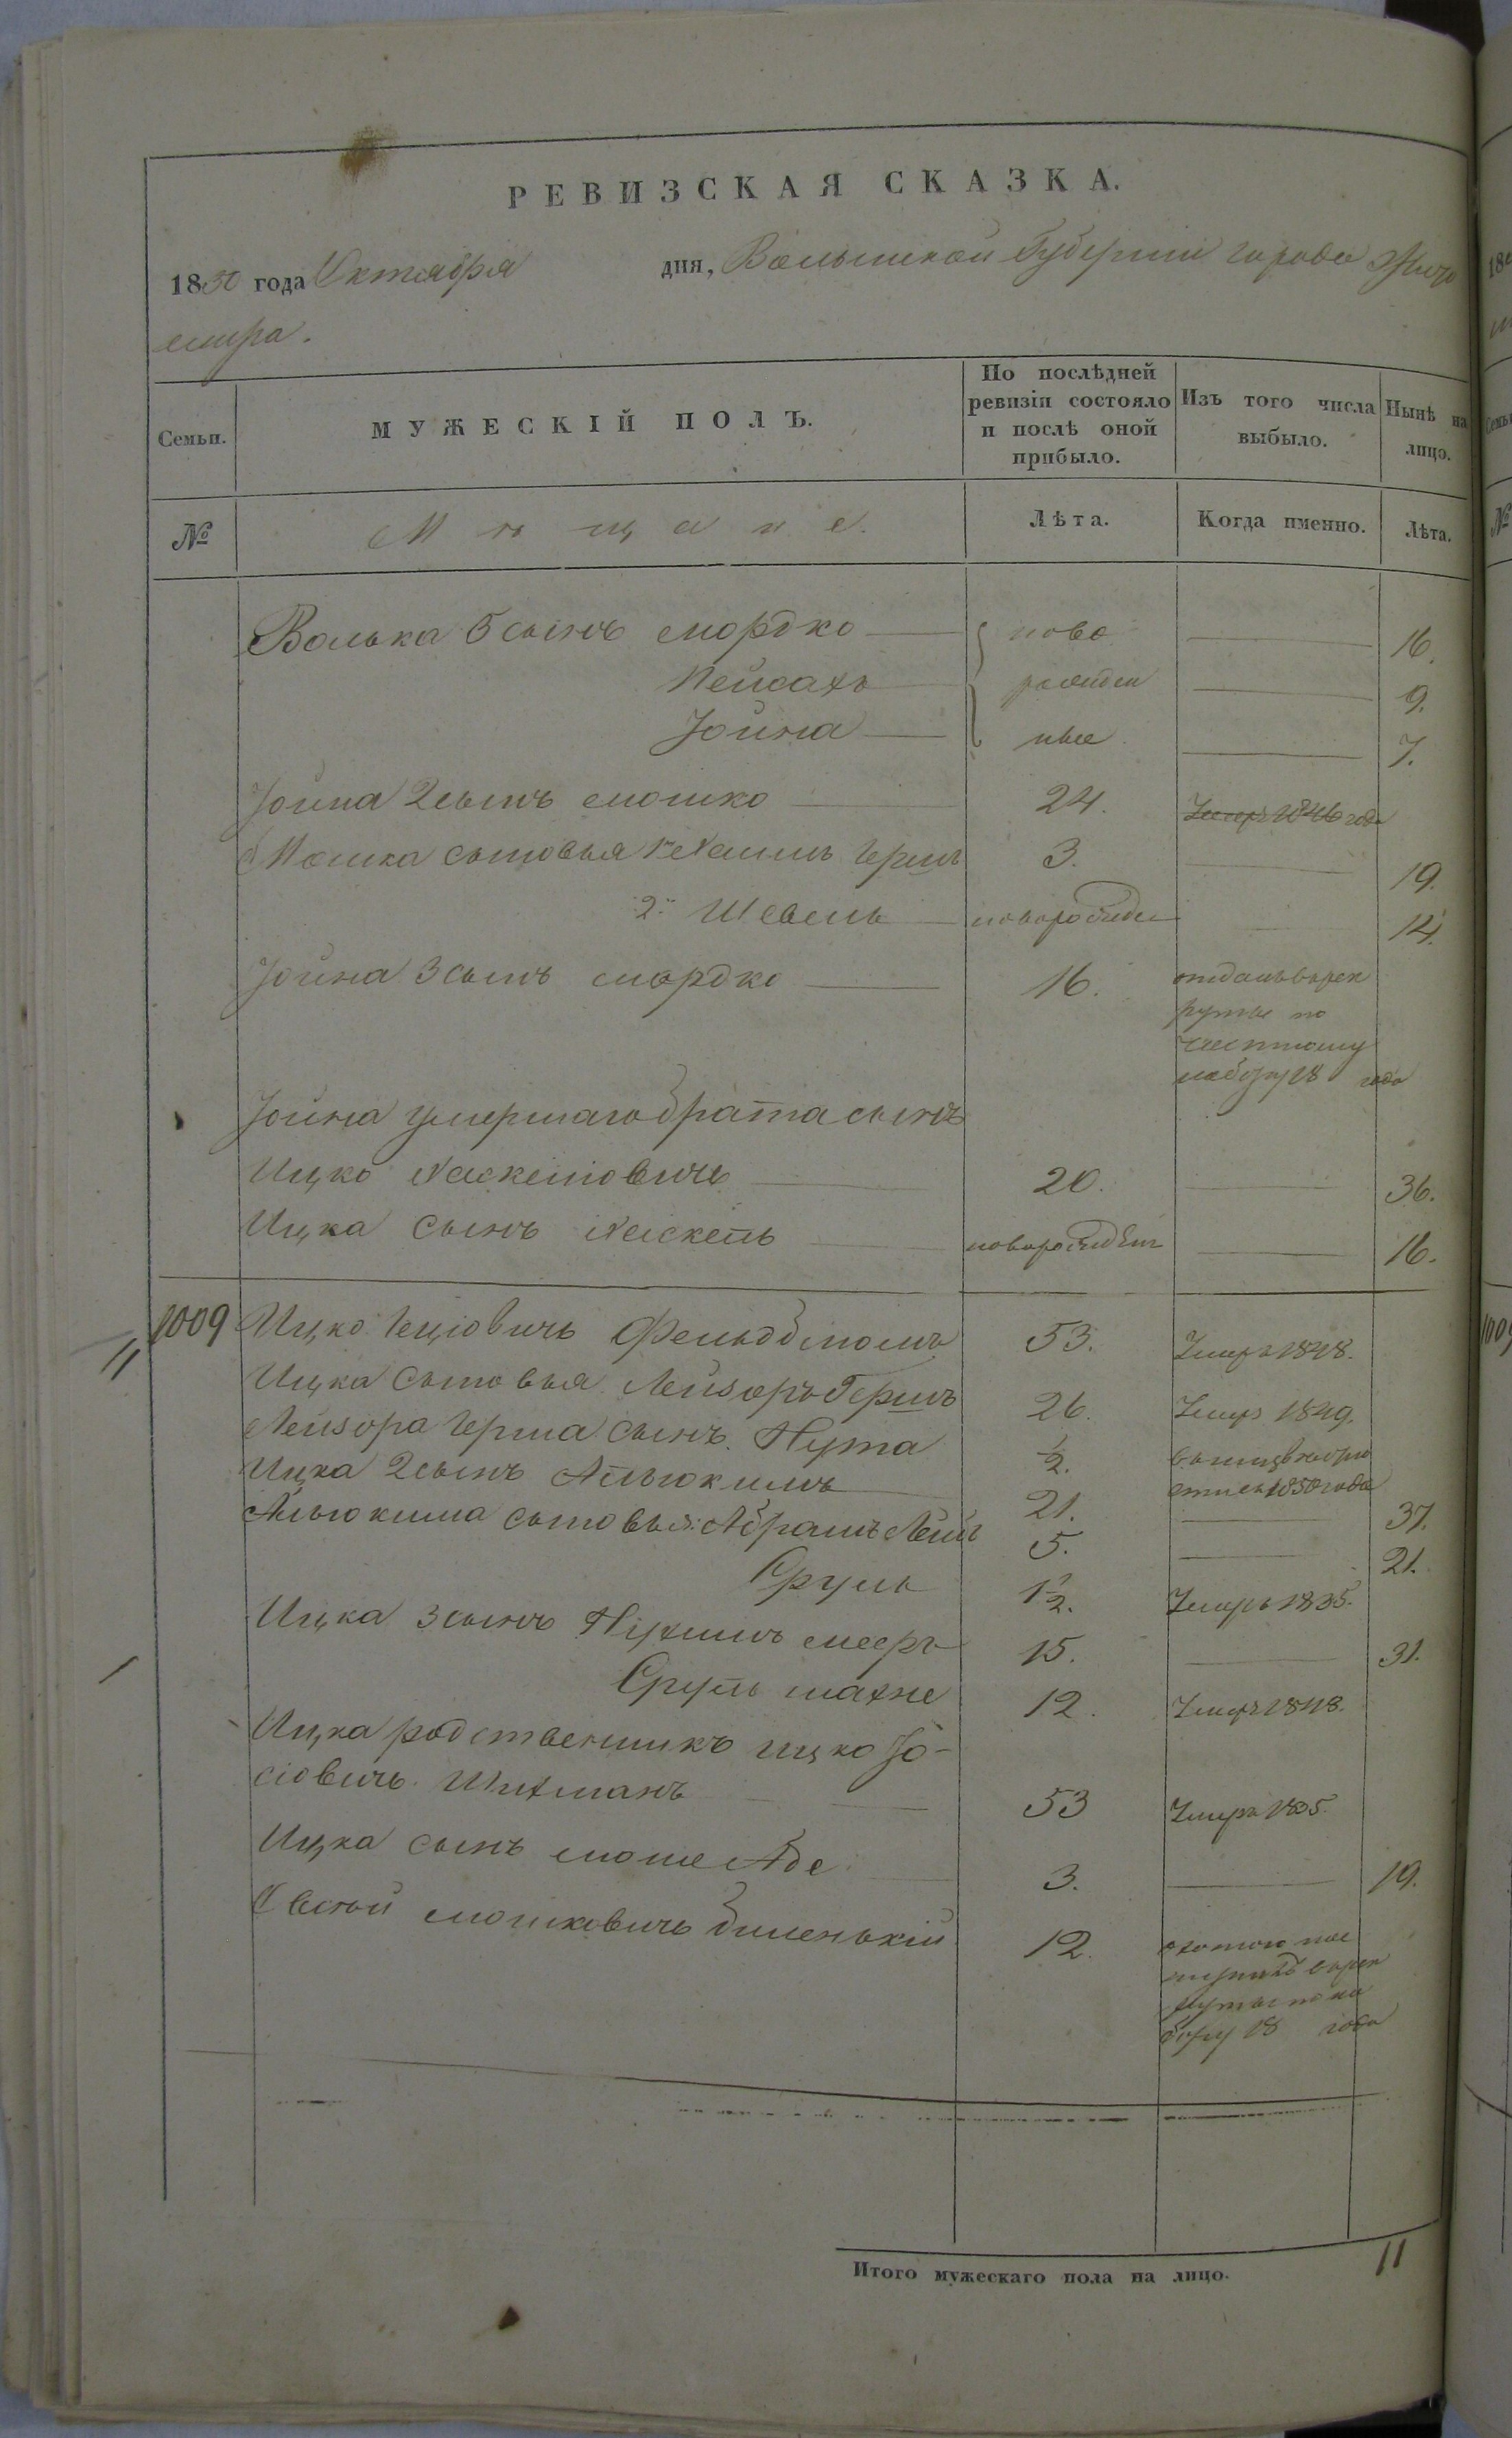 РЕВИЗСКАЯ СКАЗКА.
1850 года Октября дня, Волынской Губернии города Жито
мира.
Семьи. МУЖЕСКІЙ ПОЛЪ. По послѣдней ревизіи состояло и послѣ оной прибыло. Изъ того числа выбыло. Нынѣ на лицо.
№ Мѣщане. Лѣта. Когда именно. Лѣта.
Волька 5 сынъ Мордко ново 16.
Пейсахъ рожден 9.
Іойна ные 7.
Іойна 2 сынъ Мошко 24. Умеръ 1846 года
Мошка сыновья Герш 3. 19.
2й Шевель новорожден 14.
Іойна 3 сынъ Мордко 16. отданъ в рек
руты по
набору 18 года
Іойна умершаго брата сынъ
Ицко Хаскелiовичъ 20. 36.
Ицка сынъ Хаскель новорожден 16.
1009 Ицко Фельдблюмъ 53. Умеръ 1848.
Ицка сыновья Лейзоръ Гершъ 26. Умеръ 1849.
Лейзора Герша сынъ Нута ½.
Ицка 2 сынъ Альюкимъ 21. 1850 года 37.
Альюкима сыновья: Абрамъ Лейб 5. 21.
Сруль 1½. Умеръ 1835.
Ицка 3 сынъ Нухимъ Меер 15. 31.
Сруль Шахне 12. Умеръ 1848.
Ицка родственникъ Ицко Іо-
сіовичъ 53 Умеръ 1835.
Ицка сынъ Моше 3. 19.
Мошковичъ Биленькій 12. охотою пос
в рек
руты по на
бору 18 года
Итого мужескаго пола на лицо. 11